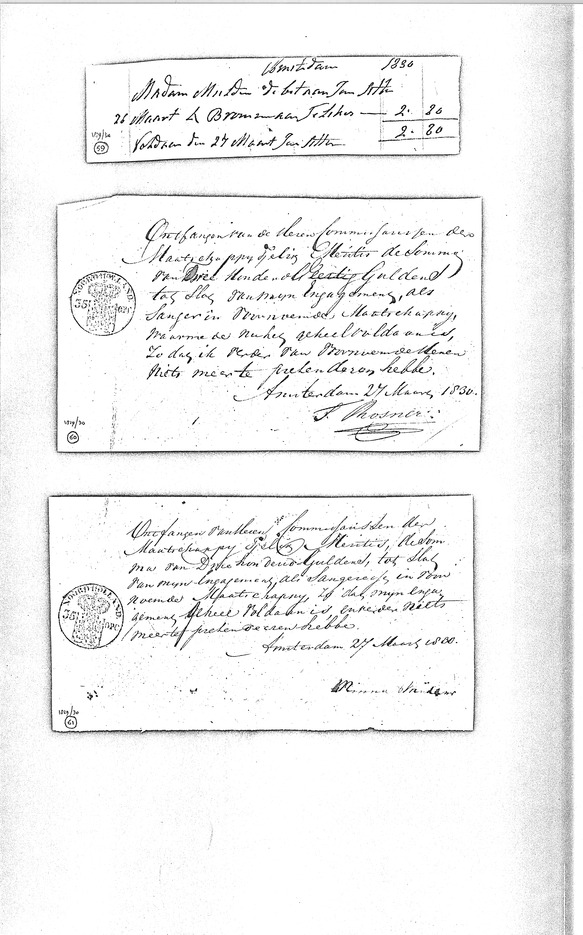 Amsterdam 1830
Madam Mulder debet aan Jan
26 Maart 2. 80
2. 80
Voldaan den 27 Maart Jan
1829/30
59
Ontfangen van de Heren Commissarissen der
Maatschappy Felix Meritis de Somma
van Drie Honderd Veertig Guldens
tot Slot van myn Engagement, als
Sanger in voornoemde Maatschappy,
waarmede geheel voldaan is,
Zo dat ik verder van Voornoemde Heeren
Niets meer te pretenderen hebbe.
Amsterdam 27 Maart 1830.
NOORDHOLLAND
35
1829/30
60
Ontfangen van Heren Commissarissen der
Maatschappy Felix Meritis, de som
ma van Driehonderd Guldens, tot Slot
van myn Engagement, als Sangeres, in voor
noemde Maatschappy, Zo dat myn Enga
gement geheel Voldaan is, en verder Niets
meer te pretendeeren hebbe.
Amsterdam 27 Maart 1830.
NOORDHOLLAND
35
Minna
1829/30
61